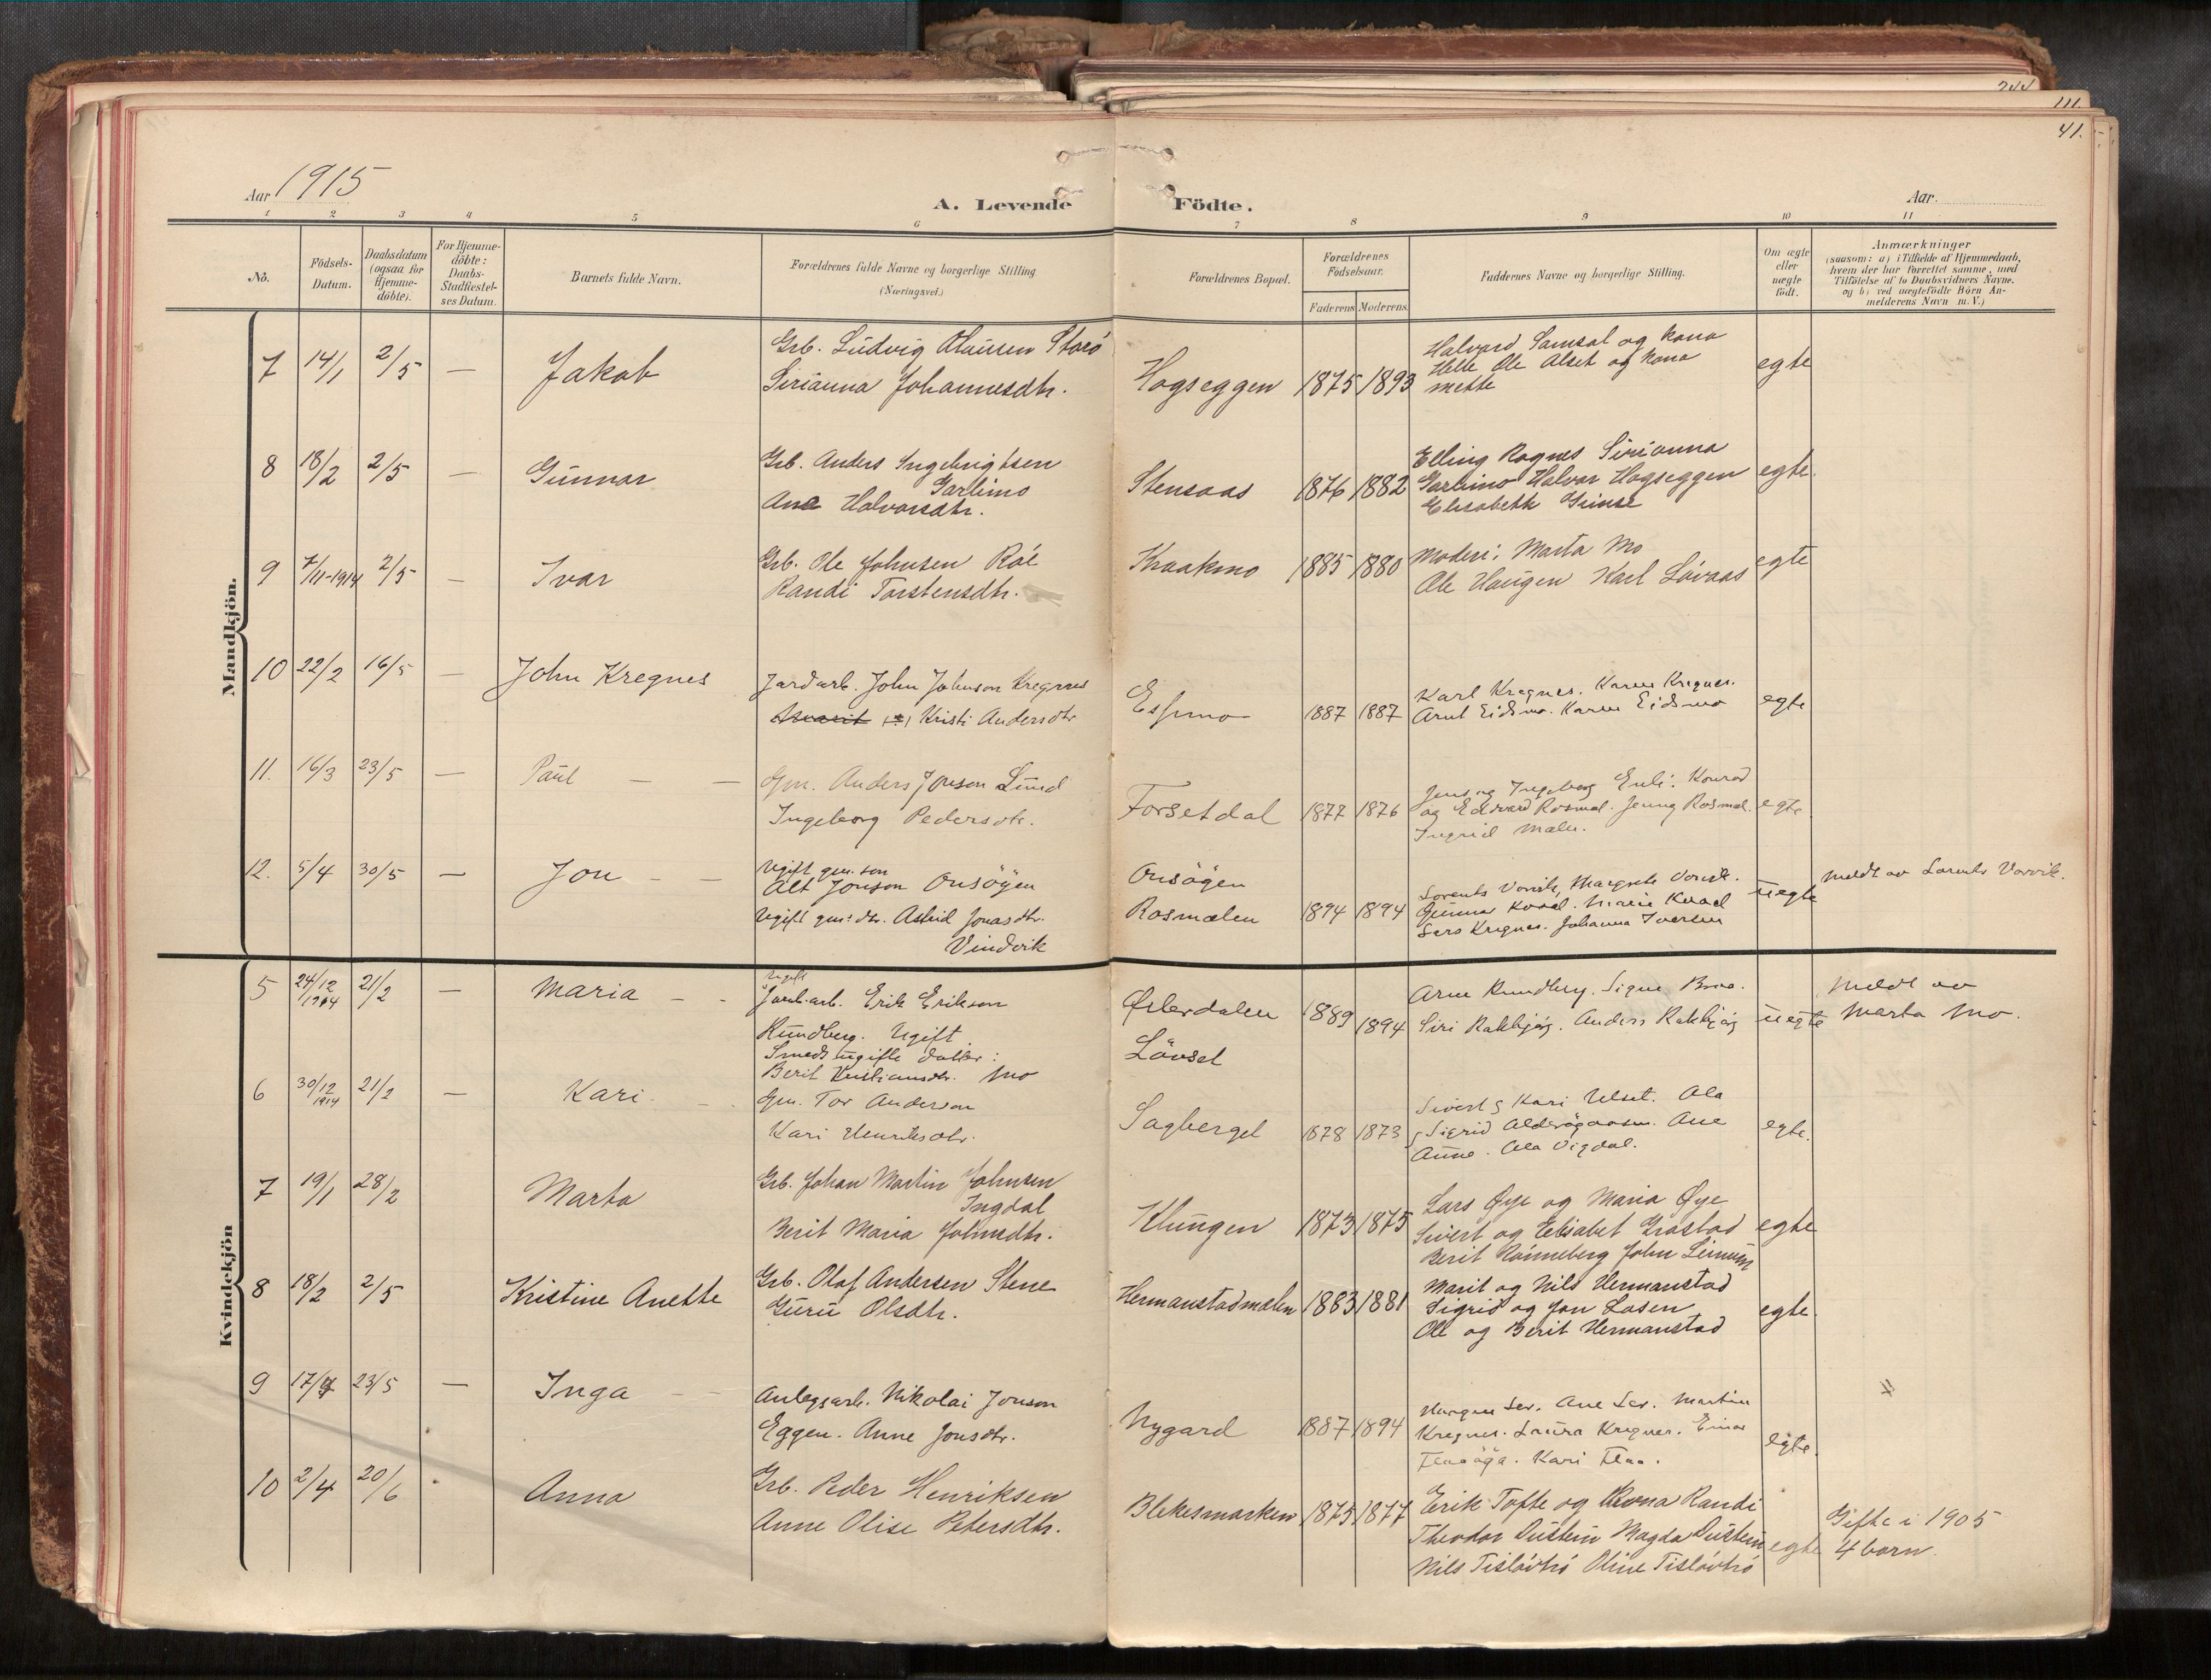 244
111.
41.
Aar 1915
A. Levende Födte.
Aar
1 2 3 4 5 6 7 8 9 10 11
No.
Födsels-Datum.
Daabsdatum (ogsaa for Hjemme-döbte).
For Hjemme-döbte: Daabs-Stadfæstel-ses Datum.
Barnets fulde Navn.
Forældrenes fulde Navne og borgerlige Stilling (Næringsvei.)
Forældrenes Bopæl.
Forældrenes Födselsaar.
Faderens Moderens
Faddernes Navne og borgerlige Stilling.
Om ægte eller uægte födt.
Anmærkninger
(saasom: a) i Tilfælde af Hjemmedaab,
hvem der har forrettet samme, med
Tilföielse af to Daabsvidners Navne.
og b) ved uægtefödte Börn An-
melderens Navn m. V.)
Mandkjön.
7 14/1 2/5 — Jakob
Grb. Ludvig Olausen Storö
Sirianna Johannesdtr.
Hogseggen 1875 1893
Halvard Samsal og kona
Ole Alset og kona
mette
egte
8 18/2 2/5 — Gunnar
Grb. Anders Ingebrigtsen
Garlimo
Ane Halvorsdtr.
Stensaas 1876 1882
Elling Rognes Sirianna
Garlimo Halvor Hogseggen
Elisabeth Grinse
egte.
9 7/11-1914 2/5 — Ivar
Grb. Ole Johnsen Röe
Randi Torstensdtr.
Kraakmo 1885 1880
Moderi: Marta Mo
Ole Haugen Karl Lövaas
egte
10 22/2 16/5 — John Kregnes
Jardarb. John Johnson Kregnes
Kristi Andersdtr
1887 1887
Karl Kregnes. Karen Kregnes.
Arnt Eidsmo. Karen Eidsmo
egte
11. 16/3 23/5 — Paul — —
Gm. Anders Jonson Lund
Ingeborg Pedersdtr.
Forsetdal 1877 1876
Jens og Ingeborg Enli. Konrad
og Edvard Rosmal. Jenny Rosmæl.
Ingrid Mælu.
egte
12. 5/4 30/5 — Jon — —
Ugift gm. son
Alt Jonson Onsöyen
Ugift gm: dtr. Astrid Jonasdtr.
Vindvik
Onsöyen
Rosmælen 1894 1894
Lorents Vorvik, Margrete Vorvik.
Gunnar Kvaal. Marie Kvaal
Lars Kregnes. Johanna Iversen
uegte
Meldt av Lorents Vorvik.
Kvindekjön
5 24/12 1914 21/2 — Maria — -
Ugift
Jarnb.arb. Erik Erikson
Rundberg. Ugift
Smeds ugifte dotter:
Berit Kristiansdtr. Mo
Østerdalen 1889
Lövset 1894
Arne Rundberg. Signe Broe.
Siri Rakbjörg. Anders Rakbjörg
uegte
Meldt av
Marta Mo.
6 30/12 1914 21/2 — Kari
Gm. Tor Anderson
Kari Henriksdtr.
Sagberget 1878 1873
Sivert & Kari Ulset. Ola
Anne. Ola Vigdal.
egte.
7 19/1 28/2 Marta
Grb. Johan Martin Johnsen
Ingdal
Berit Maria Johnsdtr.
Klungen 1873 1875
Lars Øye og Maria Øye
Sivert og Elisabet Grostad
Berit Rönneberg John Leinum
egte
8 18/2 2/5 Kristine Anette
Grb. Olaf Andersen Stene
Guru Olsdtr.
Hermanstadmælen 1883 1881
Marit og Nils Hermanstad
Sigrid og Jon Losen
Ole og Berit Hermanstad
egte.
9 17/4 23/5 — Inga — —
Anlegsarb. Nikolai Jonson
Eggen. Anne Jonsdtr.
Nygard 1887 1894
Ane Ler. Martin
Kregnes. Laura Kregnes. Einar
Flaaöya. Kari Flaa.
egte.
10 2/4 20/6 Anna
Grb. Peder Henriksen
Anne Olise Petersdtr.
Blekesmarken 1875 1877
Erik Tofte og Kona Randi
Theodor Dustein Magda Dustein
Nils Tislövhö Oline Tislövhö
egte
Gifte i 1905
4 born.